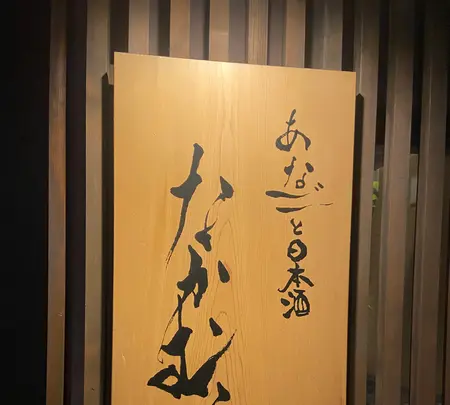 あなごと日本酒
なかむ